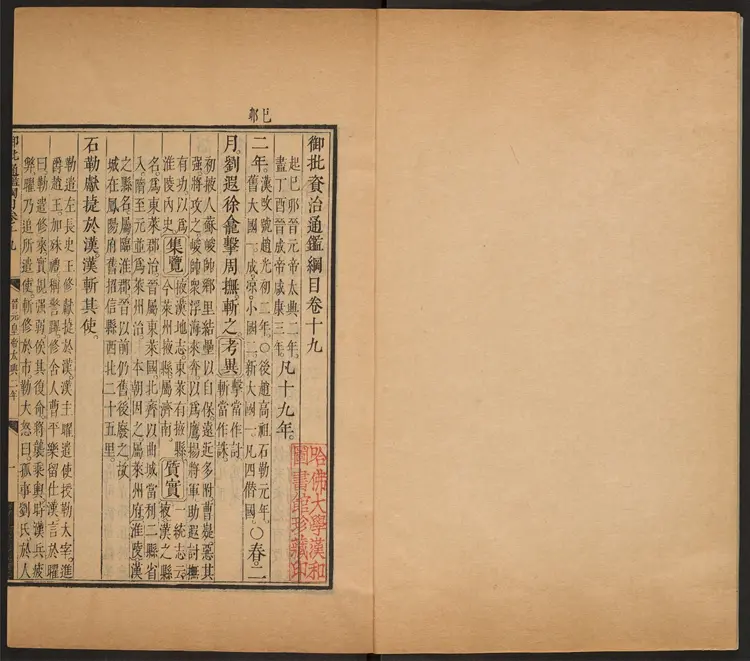 己卯
御批資治通鑑綱目卷十九
起己卯晉元帝太興二年。
盡丁酉晉成帝咸康三年。凡十九年。
二年。漢改號趙光初二年。○後趙高祖石勒元年。
舊大國一。成。涼。小國二。新大國一。凡四僭國。○春。二
月。劉遐徐龕擊周撫斬之 考異 擊當作討。
斬當作誅。
初掖人蘇峻帥鄉里結壘以自保遠近多附曹嶷惡其
强將攻之峻帥衆浮海來奔以爲鷹揚將軍助遐討撫
有功以爲
淮陵內史 集覽 掖漢地志東萊有掖縣
今萊州掖縣屬濟南。 質實 一統志云
掖漢之縣
名爲東萊郡治晉屬東萊國北齊以曲城當利二縣省
入隋至元並爲萊州治。本朝因之屬萊州府淮陵漢
之縣名屬臨淮郡晉以前仍舊後廢之故
城在鳳陽府舊招信縣西北二十五里
石勒獻捷於漢漢斬其使。
勒遣左長史王修獻捷於漢漢主曜遣使授勒太宰。進
爵趙王。加殊禮稱警蹕修舍人曹平樂留仕漢言於曜
曰勒遣修來實覘强弱俟其復命將襲乘輿時漢兵疲
弊曜乃追所遣使斬修於市勒大怒曰。孤事劉氏於人
御批通鑑綱目卷十九
晉元皇帝太興二年
一
哈佛大學漢和
圖書館珍藏印